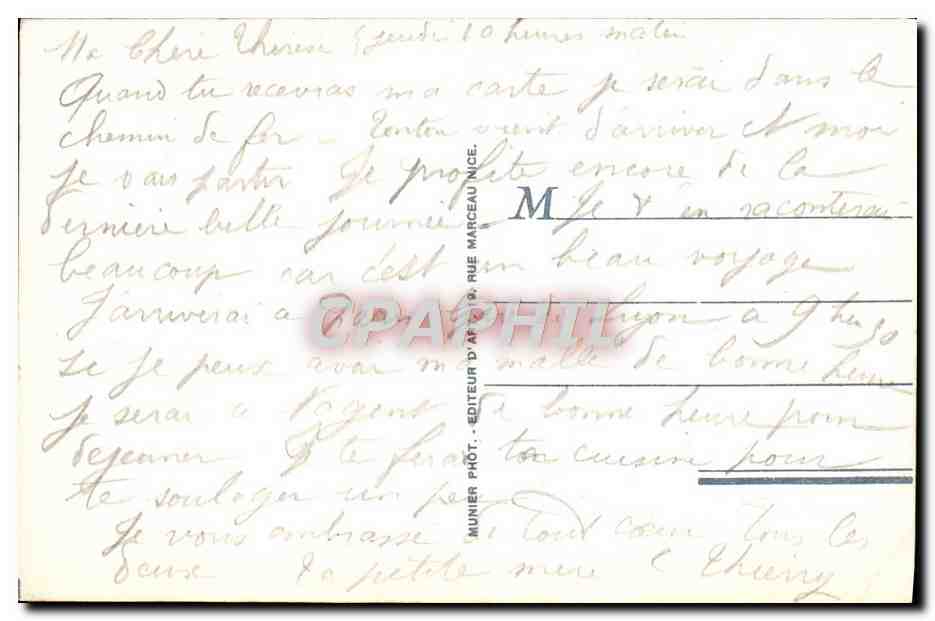 Ma Chère Thérèse jeudi 10 heures matin
Quand tu recevras ma carte je serai dans le
chemin de fer - Tonton vient d'arriver et moi
je vais partir Je profite encore de la
dernière belle journée - Je t'en raconterai
beaucoup car c'est un beau voyage
J'arriverai a Paris gare de Lyon a 9 heu 30
se je peux avoir ma malle de bonne heure
je serai a de bonne heure pour
dejeuner Je te ferai ta cuisine pour
te soulager un peu
Je vous embrasse de tout coeur tous les
deux Ta petite mere C Thierry
M
MUNIER PHOT. - EDITEUR D'ART, 19, RUE MARCEAU NICE.
CPAPHIL